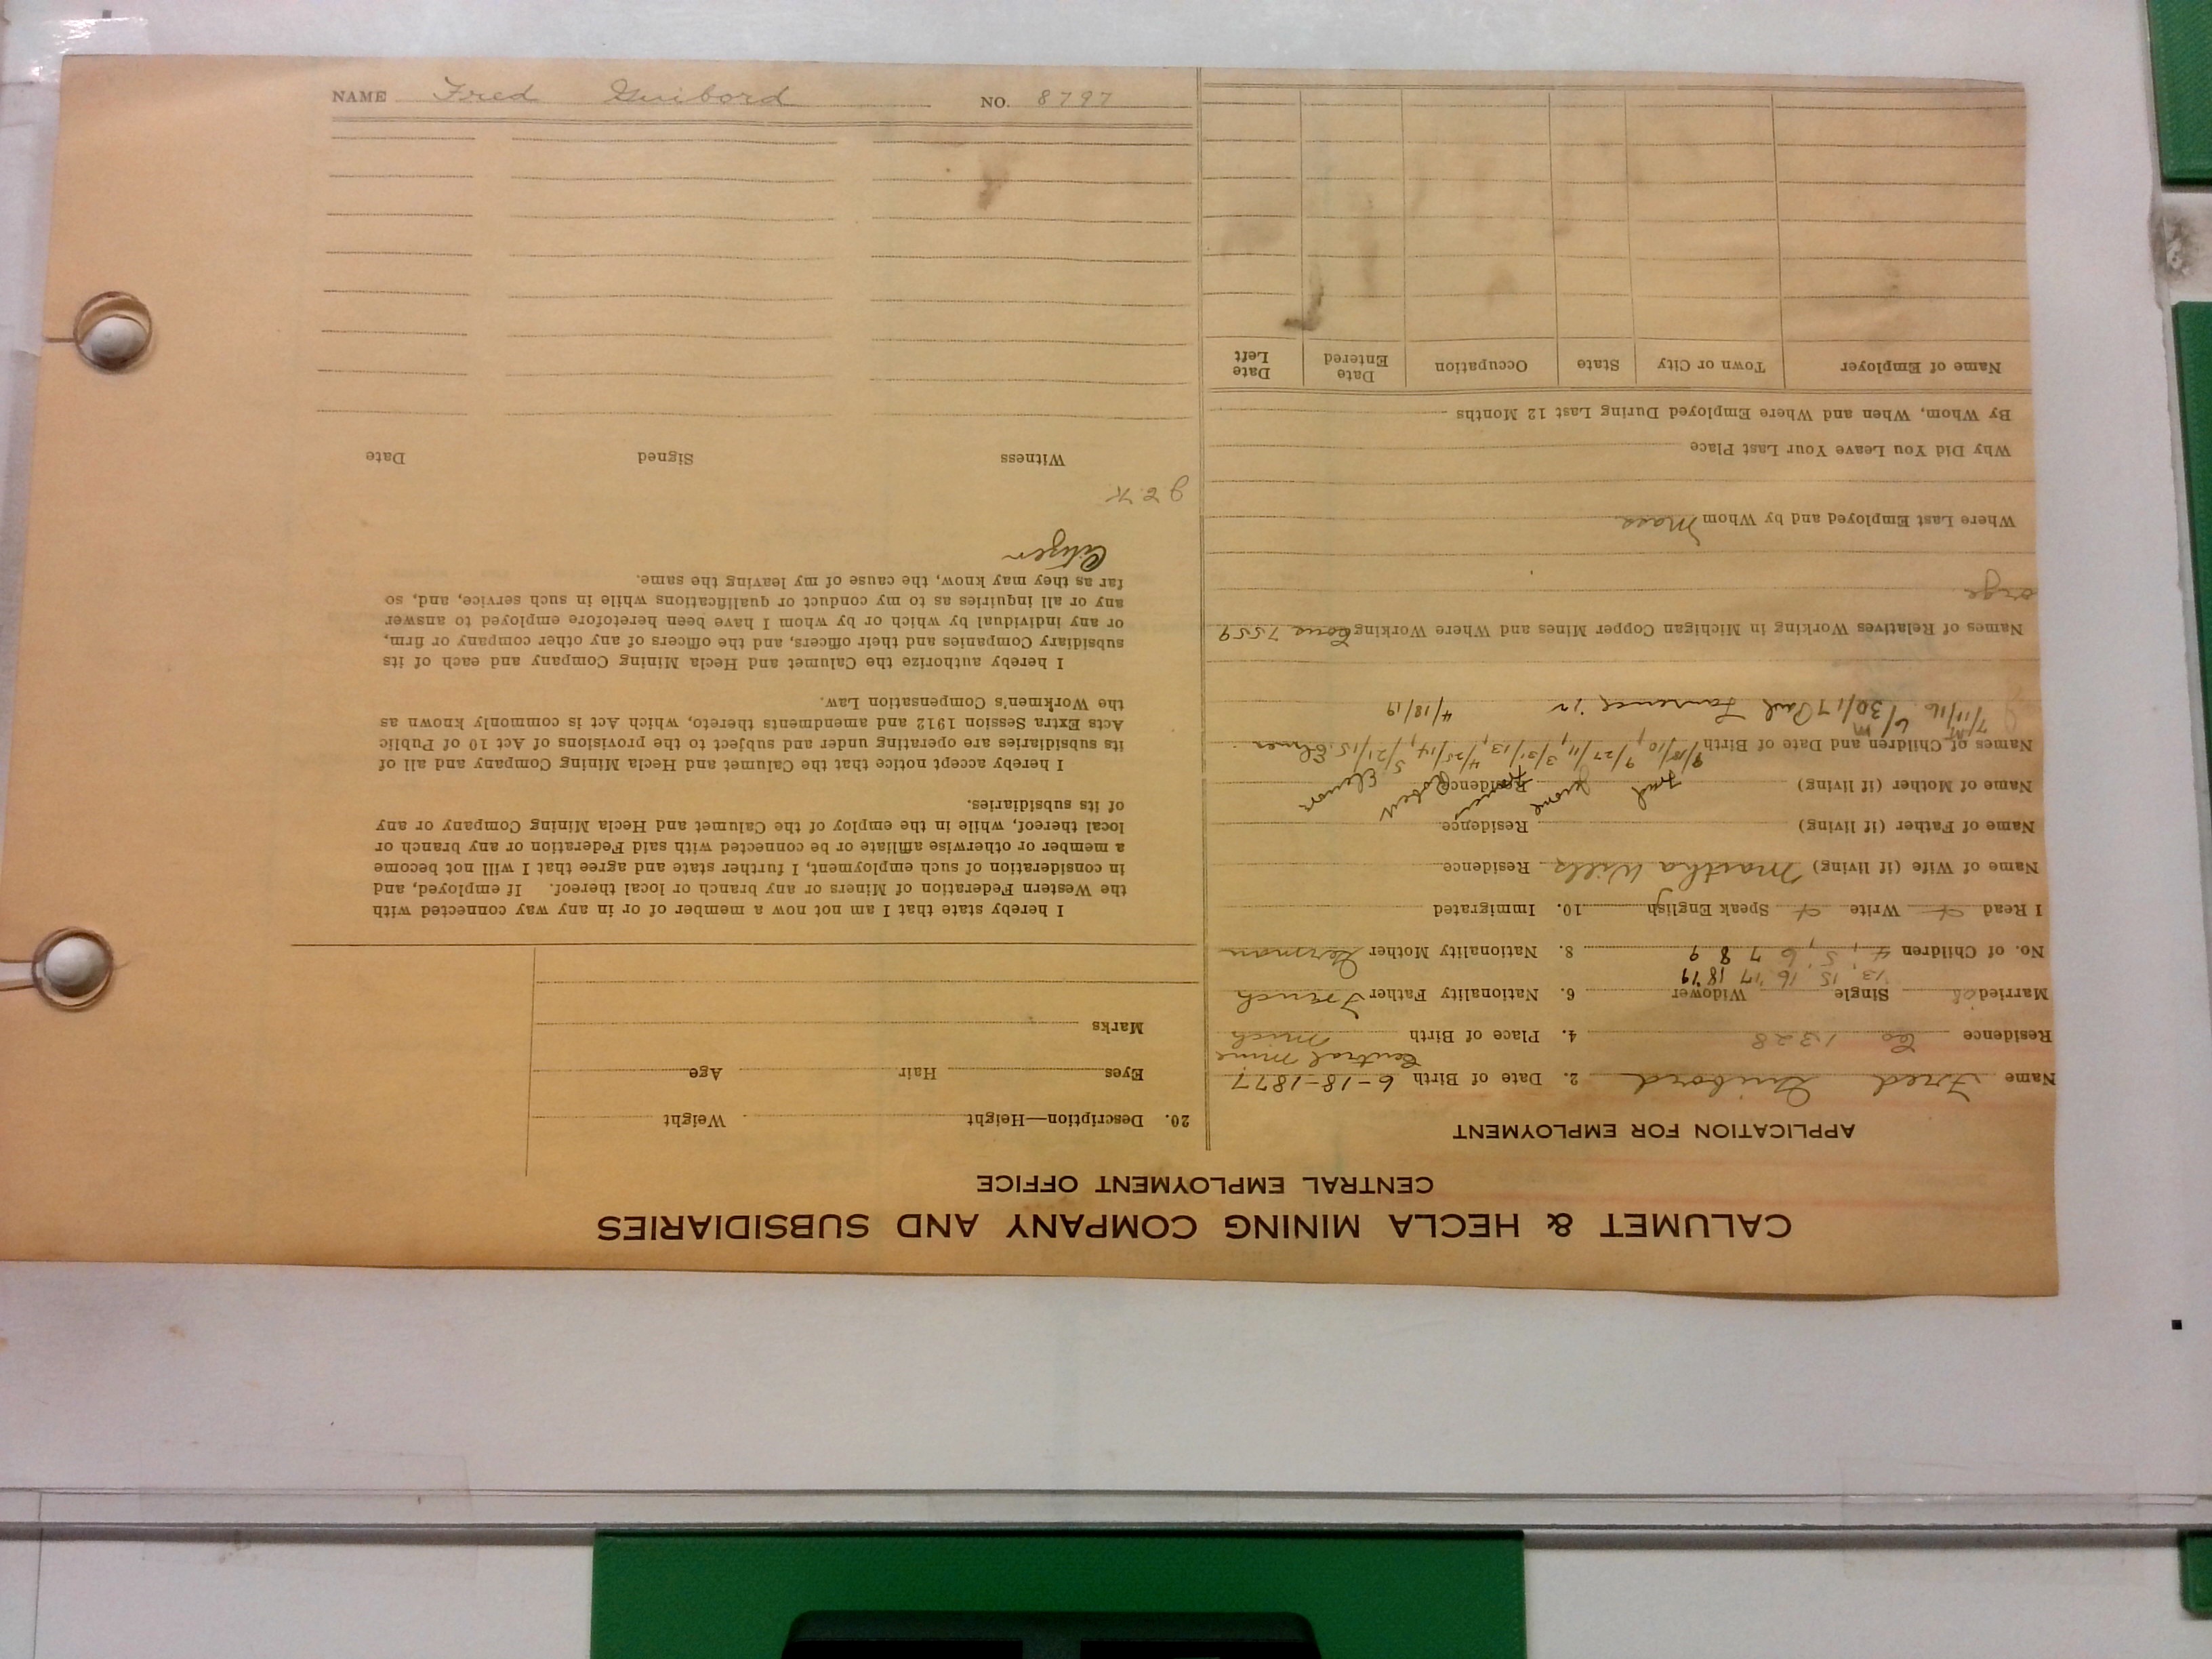 CALUMET & HECLA MINING COMPANY AND SUBSIDIARIES
CENTRAL EMPLOYMENT OFFICE
APPLICATION FOR EMPLOYMENT
Name Fred Guibord 2. Date of Birth 6-18-1877
Central Mine
Residence Co 1328 4. Place of Birth Mich
Married Single Widower 6. Nationality Father French
'13, 15 16 '17 18 '19
No. of Children 4, 5, 6 7 8 9 8. Nationality Mother German
I Read Write Speak English 10. Immigrated
Name of Wife (if living) Martha Wills Residence
Name of Father (if living) Residence
Name of Mother (if living) Residence
Fred Jerome Robert Elenor
Names of Children and Date of Birth 9/18/10, 9/27/11, 3/31/13, 4/25/14, 5/21/15. Elmer
7/11/16 6/30/17 Paul Lawrence 4/18/19
Names of Relatives Working in Michigan Copper Mines and Where Working 7559
Where Last Employed and by Whom Mass
Why Did You Leave Your Last Place
By Whom, When and Where Employed During Last 12 Months
Name of Employer Town or City State Occupation Date Entered Date Left
20. Description—Height Weight
Eyes Hair Age
Marks
I hereby state that I am not now a member of or in any way connected with
the Western Federation of Miners or any branch or local thereof. If employed, and
in consideration of such employment, I further state and agree that I will not become
a member or otherwise affiliate or be connected with said Federation or any branch or
local thereof, while in the employ of the Calumet and Hecla Mining Company or any
of its subsidiaries.
I hereby accept notice that the Calumet and Hecla Mining Company and all of
its subsidiaries are operating under and subject to the provisions of Act 10 of Public
Acts Extra Session 1912 and amendments thereto, which Act is commonly known as
the Workmen's Compensation Law.
I hereby authorize the Calumet and Hecla Mining Company and each of its
subsidiary Companies and their officers, and the officers of any other company or firm,
or any individual by which or by whom I have been heretofore employed to answer
any or all inquiries as to my conduct or qualifications while in such service, and, so
far as they may know, the cause of my leaving the same.
Citizen
Witness Signed Date
NAME Fred Guibord NO. 8797